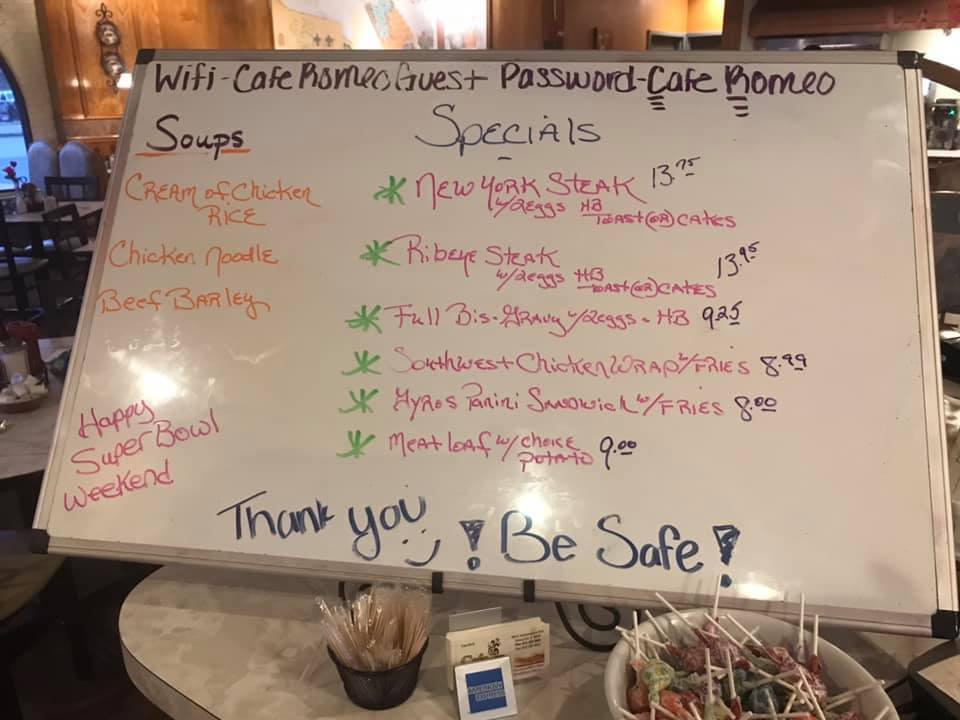 Wifi-CafeRomeoGuest Password-Cafe Romeo
Soups
Cream of Chicken
Rice
Chicken Noodle
Beef Barley
Happy
Super Bowl
Weekend
Specials
New York Steak 13.75
w/2eggs HB
Toast(or)CAKES
Ribeye Steak 13.95
w/2eggs HB
Toast(or)CAKES
Full Bis-Gravy w/2eggs-HB 9.25
Southwest Chicken Wrap w/Fries 8.99
Gyros Panini Sandwich w/Fries 8.00
Meatloaf w/choice
potato 9.00
Thank you! Be Safe!
AMERICAN
EXPRESS